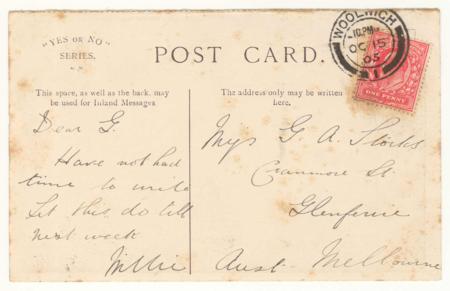 "YES or NO"
SERIES.
POST CARD.
WOOLWICH
10.PM
OC 15
05
1
ONE PENNY
This space, as well as the back, may
be used for Inland Messages
The address only may be written
here.
Dear G.
Have not had
time to write
Let this do till
next week
Millie
G. A. Stocks
Cranmore St.
Glenferrie
Aust. Melbourne